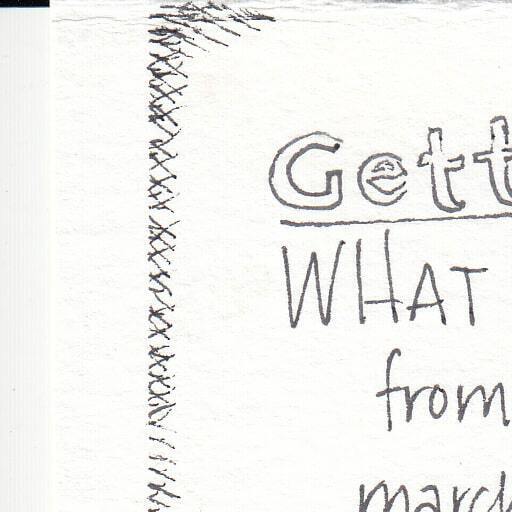 Gett
WHAT
from
march